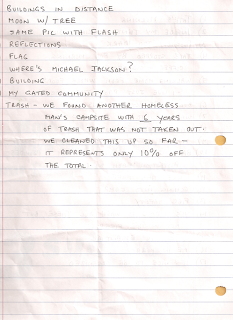 BUILDINGS IN DISTANCE
MOON W/ TREE
SAME PIC WITH FLASH
REFLECTIONS
FLAG
WHERE'S MICHAEL JACKSON?
BUILDING
MY GATED COMMUNITY
TRASH - WE FOUND ANOTHER HOMELESS
MAN'S CAMPSITE WITH 6 YEARS
OF TRASH THAT WAS NOT TAKEN OUT.
WE CLEANED THIS UP SO FAR -
IT REPRESENTS ONLY 10% OFF
THE TOTAL.